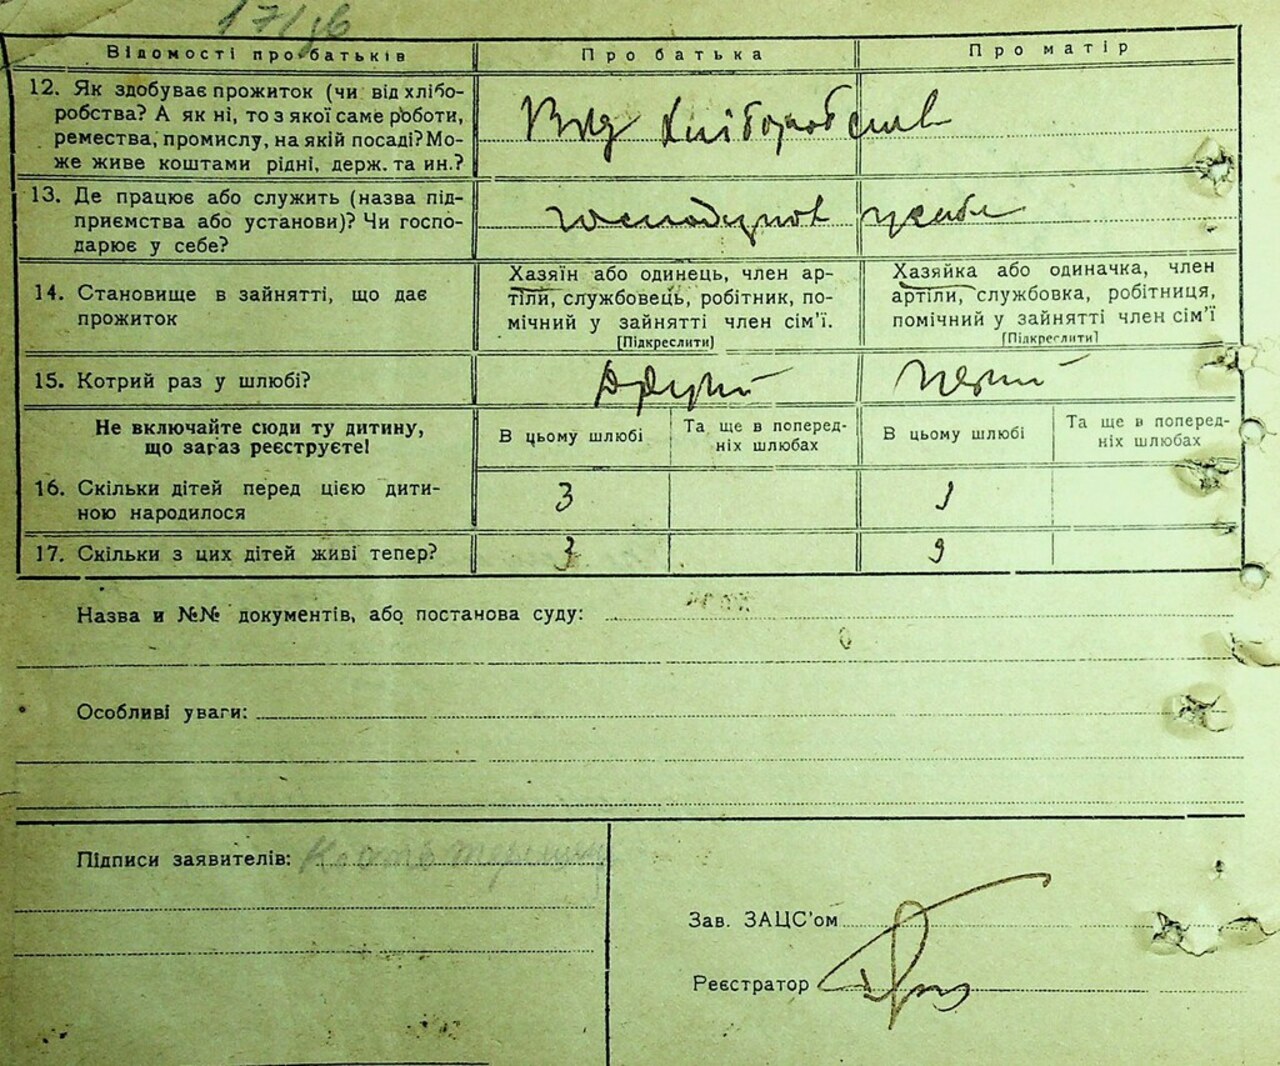 17/86
Відомості про батьків Про батька Про матір
12. Як здобуває прожиток (чи від хлібо-
робства? А як ні, то з якої саме роботи,
ремества, промислу, на якій посаді? Мо-
же живе коштами рідні, держ. та ин.?
Від хліборобства
13. Де працює або служить (назва під-
приємства або установи)? Чи госпо-
дарює у себе?
14. Становище в зайнятті, що дає
прожиток
Хазяїн або одинець, член ар-
тіли, службовець, робітник, по-
мічний у зайнятті член сім'ї.
[Підкреслити]
Хазяйка або одиначка, член
артіли, службовка, робітниця,
помічний у зайнятті член сім'ї
[Підкреслити]
15. Котрий раз у шлюбі? Другий Перший
Не включайте сюди ту дитину,
що зараз реєструєте!
В цьому шлюбі
Та ще в поперед-
ніх шлюбах
В цьому шлюбі
Та ще в поперед-
ніх шлюбах
16. Скільки дітей перед цією дити-
ною народилося
3 3
17. Скільки з цих дітей живі тепер? 3 3
Назва и №№ документів, або постанова суду:
Особливі уваги:
Підписи заявителів:
Зав. ЗАЦС'ом
Реєстратор